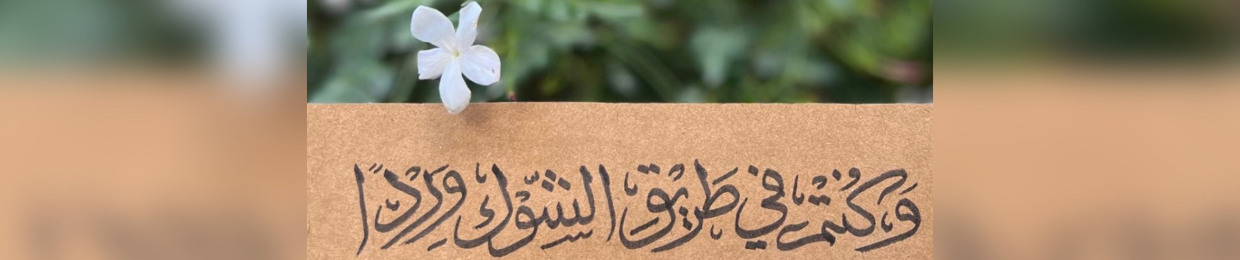 وَكُنْتُمْ فِي طَرِيْقِ الشَّوْكِ وَرْدًا